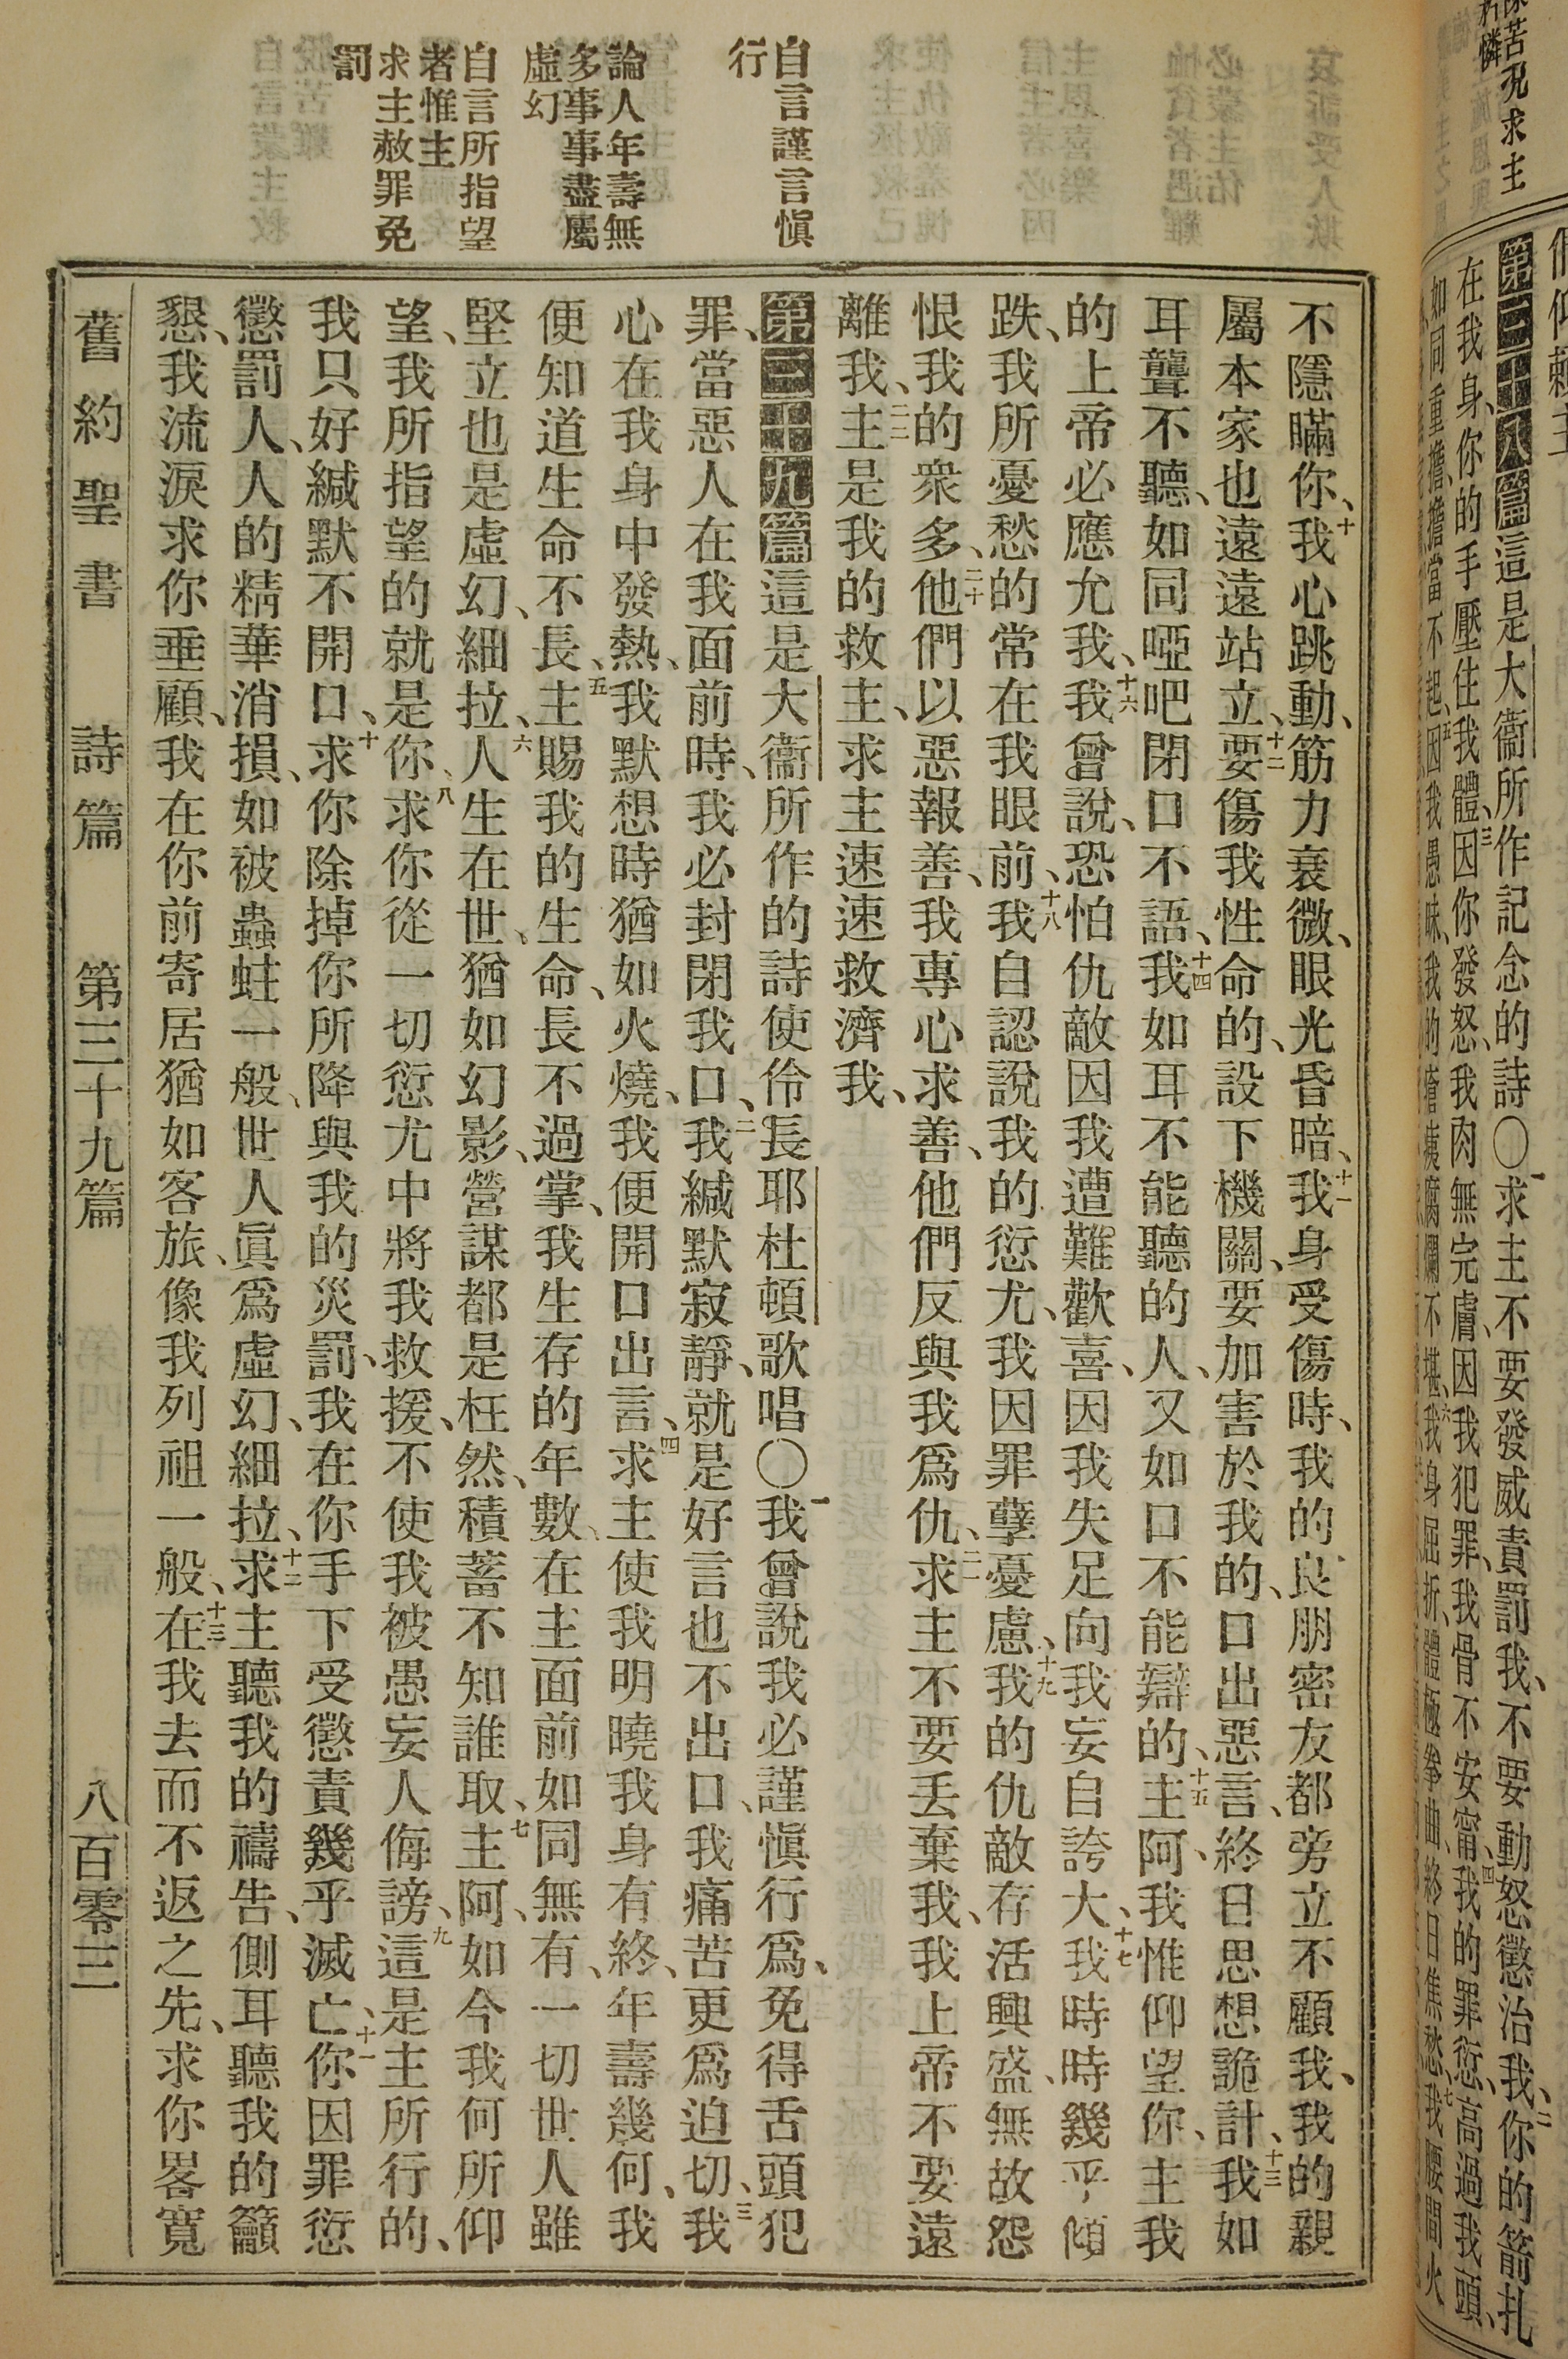 自言謹言愼
行
論人年壽無
多事事盡屬
虛幻
自言所指望
者惟主
求主赦罪免
罰
不隱瞞你、十我心跳動、筋力衰微、眼光昏暗、十一我身受傷時、我的良朋密友都旁立不顧我、我的親
屬本家也遠遠站立、十二要傷我性命的、設下機關、要加害於我的、口出惡言、終日思想詭計、十三我如
耳聾不聽、如同啞吧閉口不語、十四我如耳不能聽的人、又如口不能辯的、十五主阿、我惟仰望你、主我
的上帝必應允我、十六我曾說、恐怕仇敵因我遭難歡喜、因我失足向我妄自誇大、十七我時時幾乎傾
跌、我所憂愁的常在我眼前、十八我自認說我的愆尤、我因罪孽憂慮、十九我的仇敵存活興盛、無故怨
恨我的衆多、二十他們以惡報善、我專心求善、他們反與我爲仇、二一求主不要丢棄我、我上帝不要遠
離我、二二主是我的救主、求主速速救濟我、
第三十九篇這是大衞所作的詩使伶長耶杜頓歌唱〇一我曾說我必謹愼行爲、免得舌頭犯
罪、當惡人在我面前時、我必封閉我口、二我緘默寂靜、就是好言也不出口、我痛苦更爲迫切、三我
心在我身中發熱、我默想時猶如火燒、我便開口出言、四求主使我明曉我身有終、年壽幾何、我
便知道生命不長、五主賜我的生命、長不過掌、我生存的年數、在主面前如同無有、一切世人雖
堅立也是虛幻、細拉、六人生在世、猶如幻影、營謀都是枉然、積蓄不知誰取、七主阿、如今我何所仰
望、我所指望的就是你、八求你從一切愆尤中將我救援、不使我被愚妄人侮謗、九這是主所行的、
我只好緘默不開口、十求你除掉你所降與我的災罰、我在你手下受懲責幾乎滅亡、十一你因罪愆
懲罰人、人的精華消損、如被蟲蛀一般、世人眞爲虛幻、細拉、十二求主聽我的禱告、側耳聽我的籲
懇、我流淚求你垂顧、我在你前寄居猶如客旅、像我列祖一般、十三在我去而不返之先、求你畧寬
舊約聖書 詩篇 第三十九篇 八百零三
第三十八篇這是大衞所作記念的詩〇一求主不要發威責罰我、不要動怒懲治我、二你的箭扎
在我身、你的手壓住我體、三因你發怒、我肉無完膚、因我犯罪、我骨不安甯、四我的罪愆、高過我頭、
如同重擔、擔當不起、五因我愚昧、我的瘡痍腐爛不堪、六我身屈折、體極拳曲、終日焦愁、七我腰間火